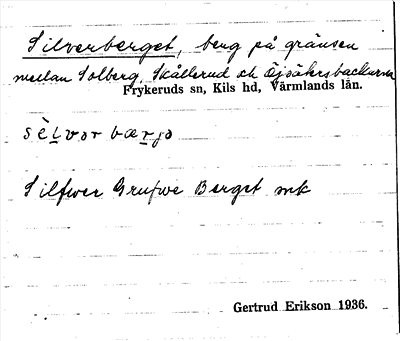 Silverberget, berg på gränsen
mellan Solberg, Skållerud och Öjsåkersbackarna
Frykeruds sn, Kils hd, Värmlands län.
sèlvor bærjə
Silfwer Grufwe Berget mk
Gertrud Erikson 1936.